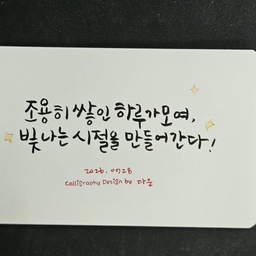 조용히 쌓인 하루가모여,
빛나는 시절을 만들어간다!
2026. 07 28
Calligraphy Design by 다움